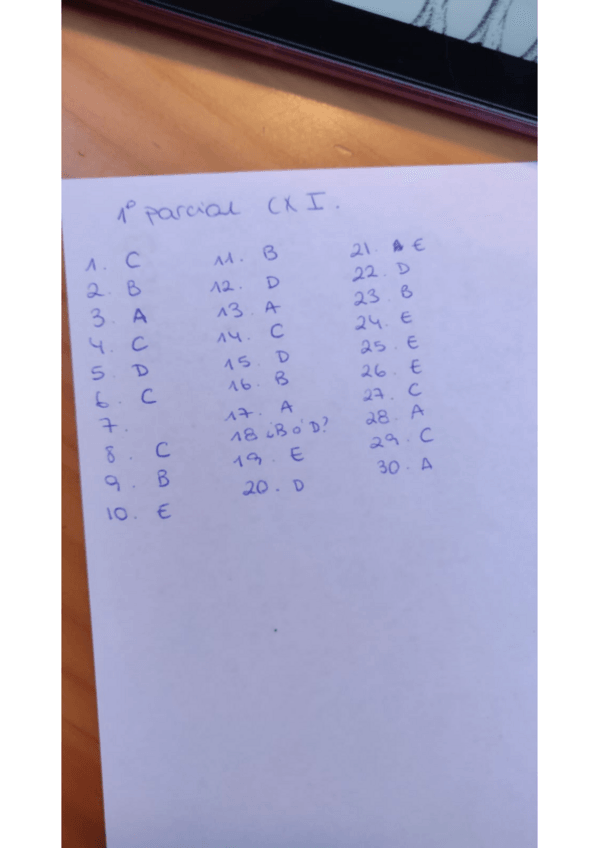 1º parcial CX I.
1. C
2. B
3. A
4. C
5. D
6. C
7.
8. C
9. B
10. E
11. B
12. D
13. A
14. C
15. D
16. B
17. A
18 ¿B ó D?
19. E
20. D
21. E
22. D
23. B
24. E
25. E
26. E
27. C
28. A
29. C
30. A